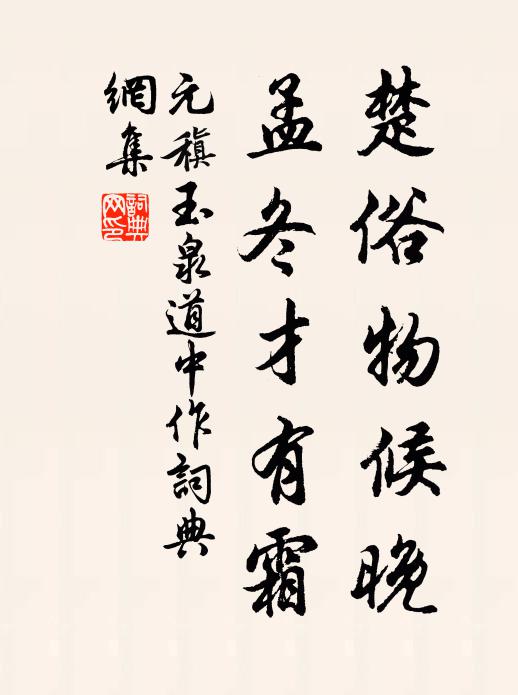 楚俗物候晚
孟冬才有霜
元稹玉泉道中作詞典
網集
詞典
网印